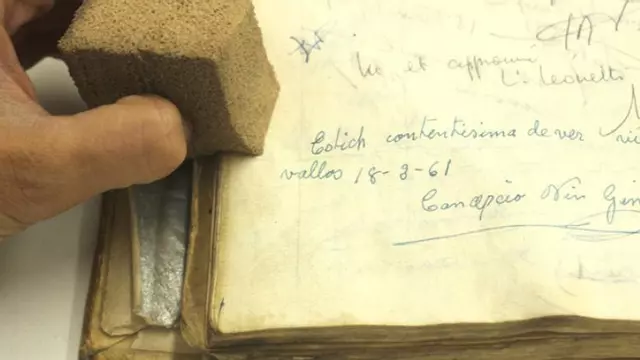 lu et approuvé
L. Leonetti
Estich contentisima de ver
vallos 18-3-61
Concepcio Nin Gin